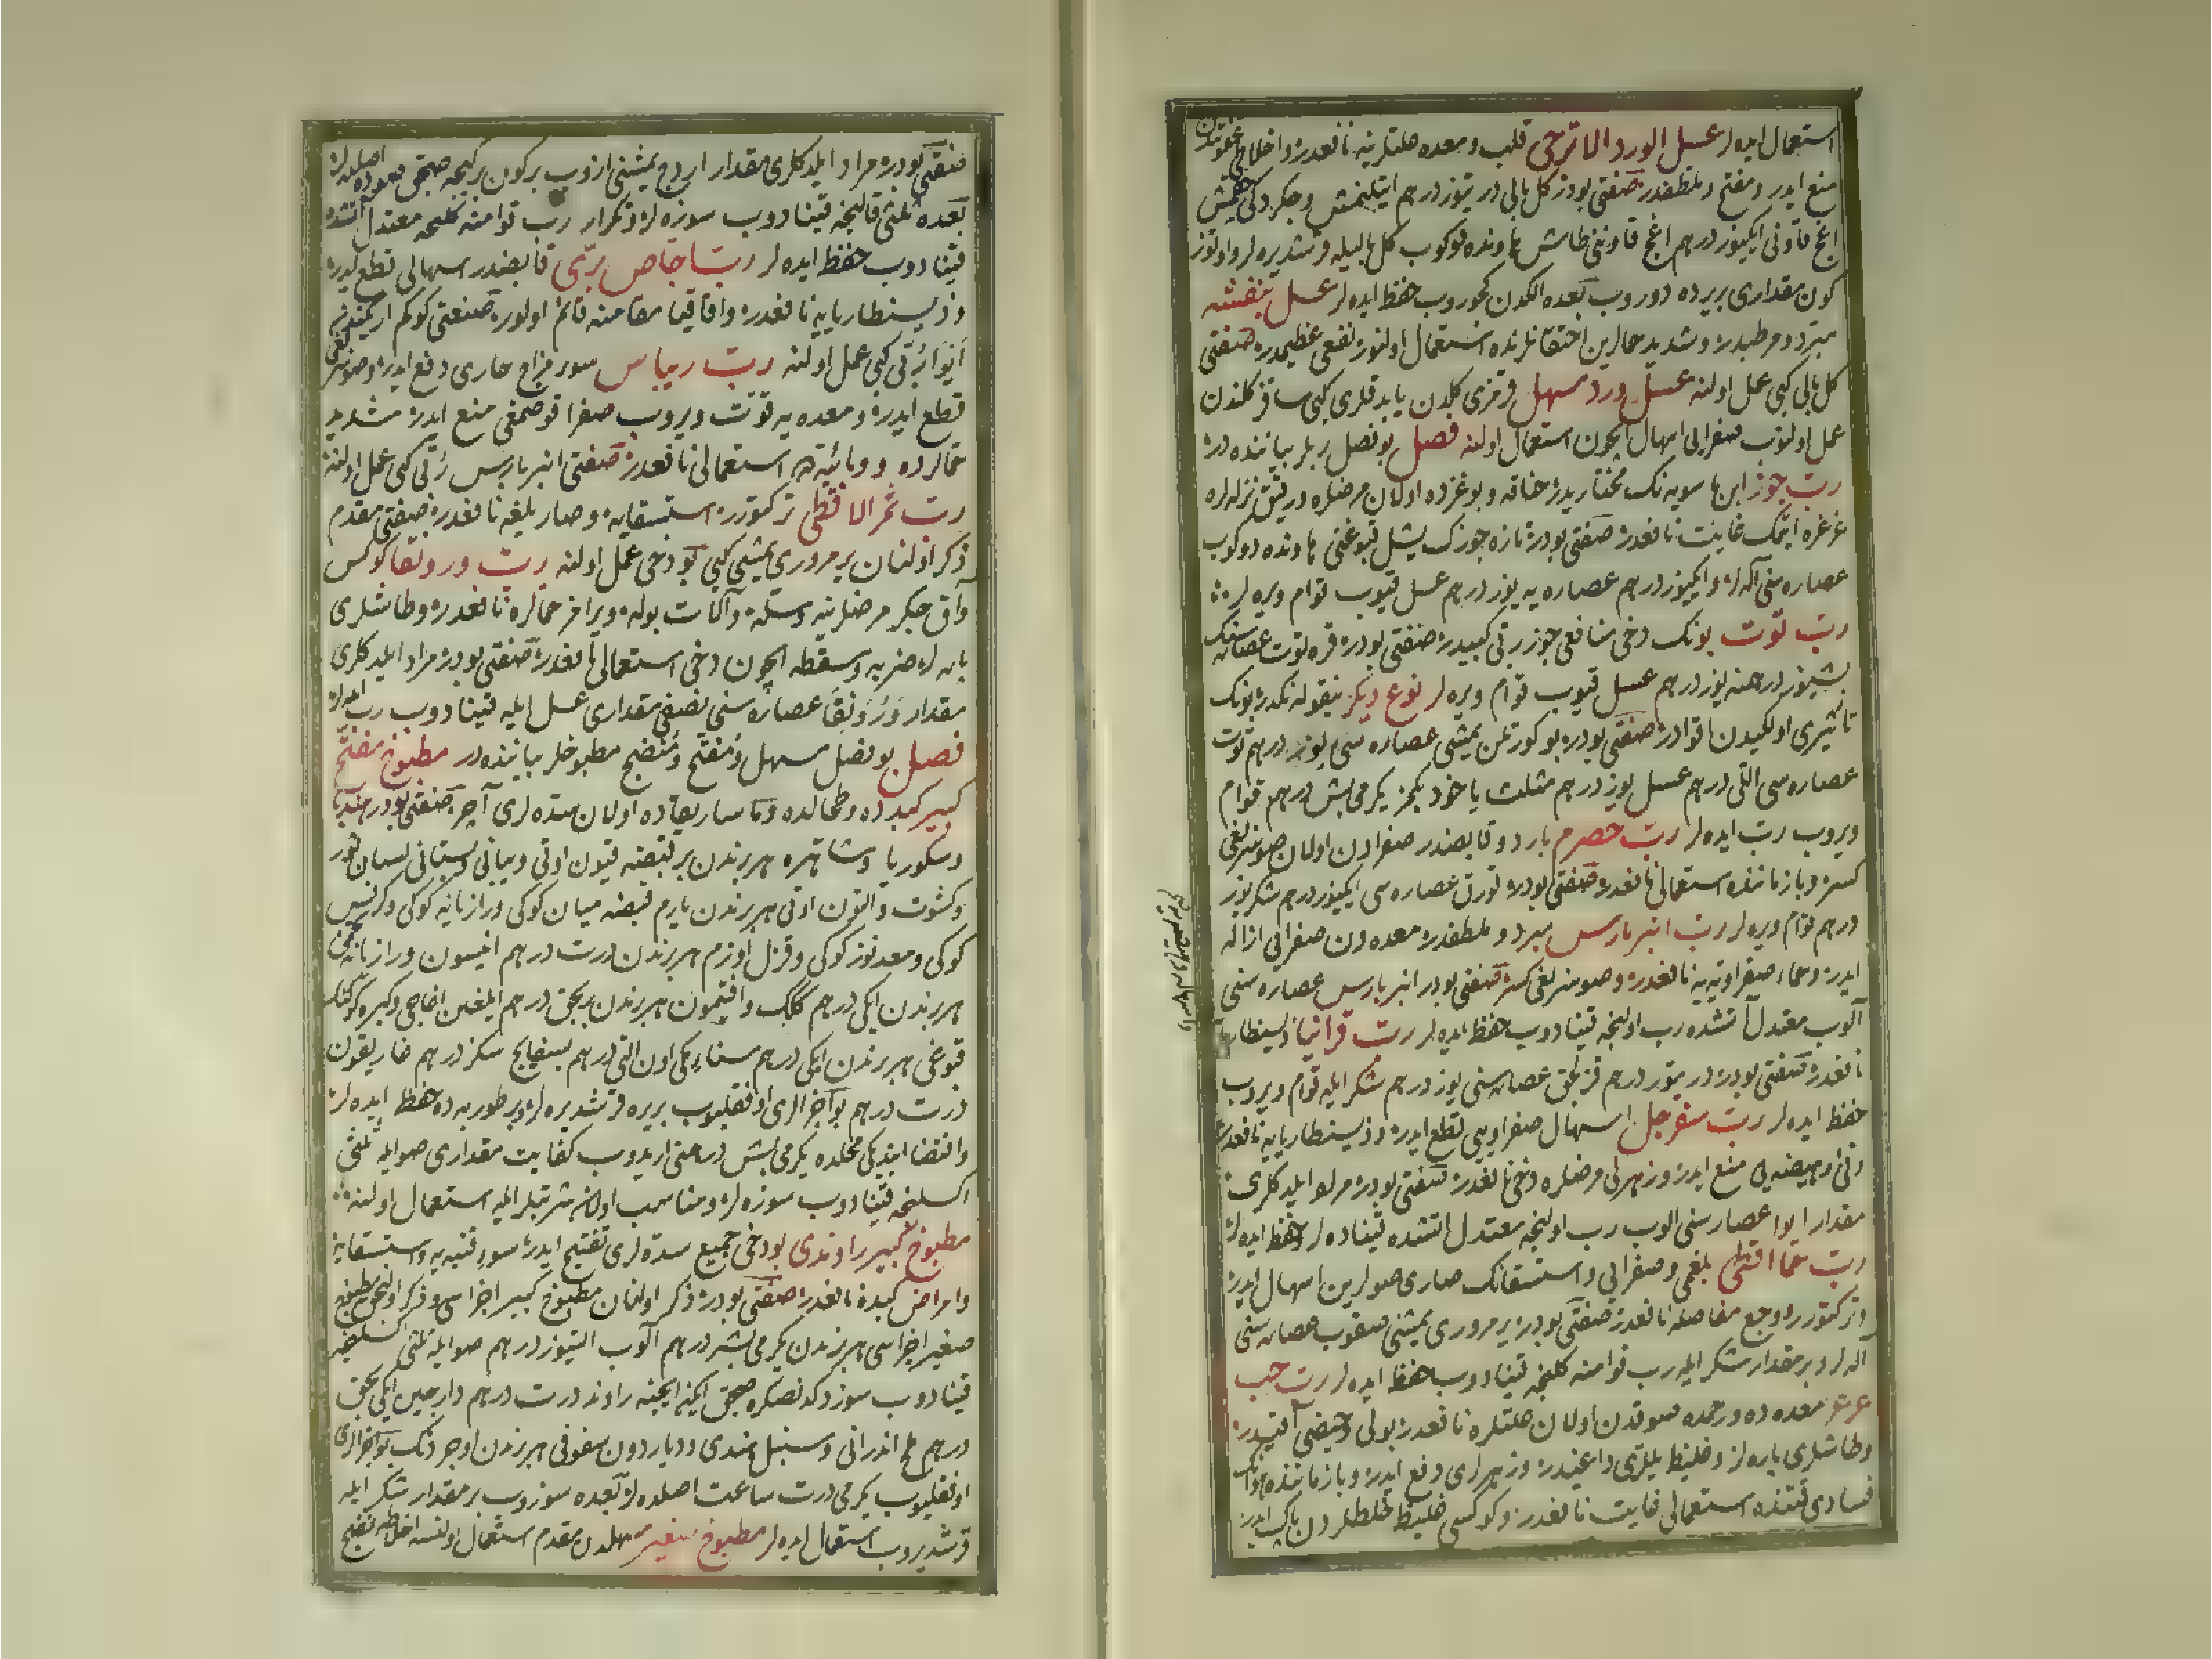 استعمال ایده لر عسل الورد الاترجی قلب و معده علتلرینه نافعدر و اخلاطی عفونتدن
منع ایدر و مفتح و ملطفدر صنعتی بودر کل بالی درتیوز درهم ایتیلنمش و چکردکی چقمش
اغج قاونی ایکیوز درهم اغج قاوننی طاش هاونده دوکوب کل بالیله قرشدیره لر و اوتوز
کون مقداری بریرده دوروب بعده الکدن کچوروب حفظ ایده لر عسل بنفشه
مبرد و مرطبدر و شدید حالرین احتقانلرنده استعمال اولنور نفعی عظیمدر صنعتی
کل بالی کبی عمل اولنه عسل ورد مسهل قرمزی کلدن یابدقلری کبی ساقز کلندن
عمل اولنوب صفرایی اسهال ایچون استعمال اولنه فصل بو فصل ربلر بیاننده در
رب جوز ابن ماسویه نک مختاریدر خناقه و بوغزده اولان مرضلره و رقیق نزله لره
غرغره ایتمک غایت نافعدر صنعتی بودر تازه جوزک یشیل قبوغنی هاونده دوکوب
عصاره سنی آله لر و ایکیوز درهم عصاره یه یوز درهم عسل قیوب قوام ویره لر
رب توت بونک دخی منافعی جوز ربی کبیدر صنعتی بودر قره توت عصاره سنک
بشیوز درهمنه یوز درهم عسل قیوب قوام ویره لر نوع دیکر نیقوله نکدر بونک
تأثیری اولکیدن اقوادر صنعتی بودر بوکورتلن یمشی عصاره سی یوز درهم توت
عصاره سی اللی درهم عسل یوز درهم مثلث یاخود بکمز یکرمی بش درهم قوام
ویروب رب ایده لر رب حصرم بارد و قابضدر صفرادن اولان صوسزلغی
کسر و باز ماننده استعمالی نافعدر صنعتی بودر قورق عصاره سی ایکیوز درهم شکر یوز
درهم قوام ویره لر رب انبرباریس مبرد و ملطفدر معده دن صفرایی ازاله
ایدر و حماء صفراویه یه نافعدر و صوسزلغی کسر صنعتی بودر انبرباریس عصاره سنی
آلوب معتدل آتشده رب اولنجه قینادوب حفظ ایده لر رب قرانیا ذیسنطاریایه
نافعدر صنعتی بودر درتیوز درهم قزلجق عصاره سنی یوز درهم شکر ایله قوام ویروب
حفظ ایده لر رب سفرجل اسهال صفراویی قطع ایدر و ذیسنطاریایه نافعدر
وقئ و هیضه یی منع ایدر و زهرلی مرضلره دخی نافعدر صنعتی بودر مراد ایلدکلری
مقدار ایوا عصاره سنی الوب رب اولنجه معتدل آتشده قیناده لر و حفظ ایده لر
رب خما اقطی بلغمی و صفرایی و استسقانک صاری صولرین اسهال ایدر
و ترکتورر و وجع مفاصله نافعدر صنعتی بودر یرمروری یمشنی صقوب عصاره سنی
آله لر و بر مقدار شکر ایله رب قوامنه کلنجه قینادوب حفظ ایده لر رب حب
عرعر معده ده و رحمده صوقدن اولان علتلره نافعدر بولی و حیضی آقیدر
وطاشلری پاره لر و غلیظ یللری داغیدر و زهرلری دفع ایدر و باز ماننده هوانک
فسادی وقتنده استعمالی غایت نافعدر و کوکسی غلیظ خلطلردن پاک ایدر
صنعتی بودر مراد ایلدکلری مقدار اردج یمشنی ازوب برکون برکیجه صیجق صوده اصلده لر
بعده ثلثی قالنجه قینادوب سوزه لر و تکرار رب قوامنه کلنجه معتدل آتشده
قینادوب حفظ ایده لر رب اجاص بری قابضدر اسهالی قطع ایدر
و ذیسنطاریایه نافعدر و اقاقیا مقامنه قائم اولور صنعتی کوکم اریکندن
ایوا ربی کبی عمل اولنه رب ریباس سوء مزاج حاری دفع ایدر و صوسزلغی
قطع ایدر و معده یه قوت ویروب صفرا قوصمغی منع ایدر شدید
حمالرده و وبائیه ده استعمالی نافعدر صنعتی انبرباریس ربی کبی عمل اولنه
رب ثمر الاقطی ترکتورر استسقایه و صاری بلغمه نافعدر صنعتی مقدم
ذکر اولنان یرمروری یمشی کبی بو دخی عمل اولنه رب ورونقا کوکس
و آق جکر مرضلرینه و سله و آلات بوله و یراخر حمالره نافعدر و طاشلری
پاره لر ضربه و سقطه ایچون دخی استعمالی نافعدر صنعتی بودر مراد ایلدکلری
مقدار ورونقا عصاره سنی نصفی مقداری عسل ایله قینادوب رب ایده لر
فصل بو فصل مسهل و مفتح و منضج مطبوخلر بیاننده در مطبوخ مفتح
کبیر کبدده و طحالده و ماساریقاده اولان سده لری آچر صنعتی بودر هندبا
و سکوریا و شاهتره هر برندن بر قبضه قیون اوتی و یبانی و بستانی لسان ثور
و کشوت و التون اوتی هر برندن یارم قبضه میان کوکی و رازیانه کوکی و کرفس
کوکی و معدنوز کوکی و قزل اوزم هر برندن درت درهم انیسون و رازیانه تخمی
هر برندن ایکی درهم کلک و افتیمون هر برندن بر بچق درهم ایلغین اغاجی و کبره کوکنک
قبوغی هر برندن ایکی درهم سناء مکی اون التی درهم بسفایج سکز درهم غاریقون
درت درهم بو اجزالری اوفقلیوب بریره قرشدیره لر و بر طوربه ده حفظ ایده لر
و اقتضا ایتدکی محلده یکرمی بش درهمنی اریدوب کفایت مقداری صو ایله ثلثی
اکسلنجه قینادوب سوزه لر و مناسب اولان شربتلر ایله استعمال اولنه
مطبوخ کبیر راوندی بو دخی جمیع سده لری تفتیح ایدر سوء قنیه یه و استسقایه
و امراض کبده نافعدر صنعتی بودر ذکر اولنان مطبوخ کبیر اجزاسی و ذکر اولنجق مطبوخ
صغیر اجزاسی هر برندن یکرمی بشر درهم آلوب التیوز درهم صو ایله ثلثی اکسلنجه
قینادوب سوزدکدنصکره صیجق ایکن ایچنه راوند درت درهم دارچین ایکی بچق
درهم ملح اندرانی و سنبل هندی و دیاردون سفوفی هر برندن اوچر دنک بو اجزالری
اوفقلیوب یکرمی درت ساعت اصلده لر بعده سوزوب بر مقدار شکر ایله
قرشدیروب استعمال ایده لر مطبوخ صغیر مسهلدن مقدم استعمال اولنسه اخلاطه نضج